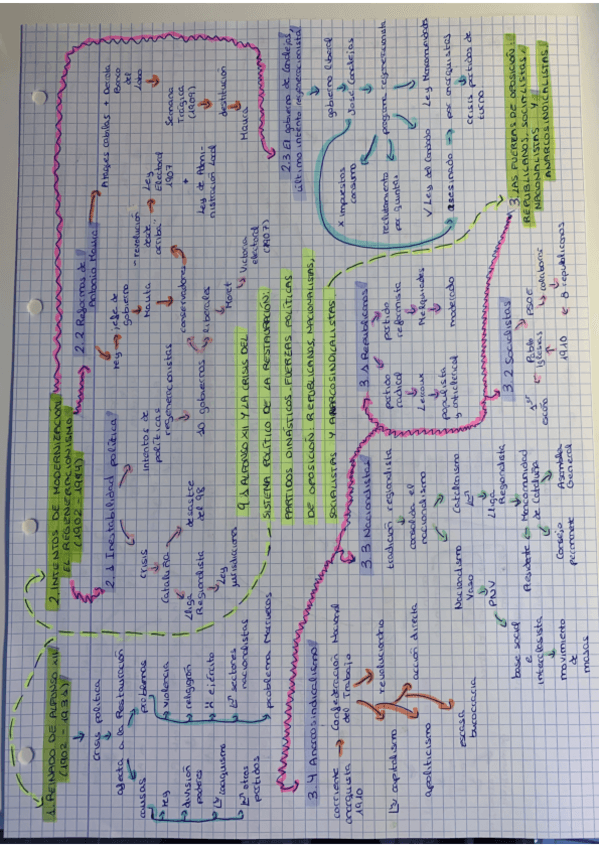 1. REINADO DE ALFONSO XIII
(1902 - 1931)
crisis política
afecta a la Restauración
causas
rey
división
poderes
caciquismo
otros
partidos
problemas
violencia
religión
ejército
sectores
nacionalistas
problema Marruecos
2. INTENTOS DE MODERNIZACIÓN
EL REGENERACIONISMO
(1902 - 1914)
2.1 Inestabilidad política
crisis
Cataluña
Lliga
Regionalista
desastre
del 98
Ley
jurisdicciones
intentos de
políticas
regeneracionistas
10 gobiernos
conservadores
liberales
Moret
Victoria
electoral
(1907)
2.2 Reformas de
Antonio Maura
rey
jefe de
Gobierno
Maura
- revolución
desde
arriba
Ley
Electoral
1907
+
Ley de Admi-
nistración Local
Ataques cabilas + Derrota
Barranco
del
Lobo
Semana
Trágica
(1909)
destitución
Maura
2.3 El gobierno de Canalejas,
último intento regeneracionista
gobierno liberal
José Canalejas
programa regeneracionista
x impuestos
consumo
reclutamiento
por quintas
Ley del candado
Ley Mancomunidades
asesinado → por anarquistas
Crisis partidos de
turno
9.1 ALFONSO XIII Y LA CRISIS DEL
SISTEMA POLÍTICO DE LA RESTAURACIÓN:
PARTIDOS DINÁSTICOS. FUERZAS POLÍTICAS
DE OPOSICIÓN: REPUBLICANOS, NACIONALISTAS,
SOCIALISTAS Y ANARCOSINDICALISTAS
3. LAS FUERZAS DE OPOSICIÓN:
REPUBLICANOS, SOCIALISTAS,
NACIONALISTAS Y
ANARCOSINDICALISTAS
3.1 Republicanos
partido
radical
Lerroux
populista
y anticlerical
partido
reformista
Melquiades
moderado
3.2 Socialistas
PSOE
Pablo
Iglesias
1er
escaño
1910
colaborar
republicanos
3.3 Nacionalistas
tradición regionalista
consolida el
nacionalismo
Nacionalismo
Vasco
PNV
base social
e
interclasista
movimiento
de
masas
Catalanismo
Lliga
Regionalista
Mancomunidad
de Cataluña
Presidente
Consejo
permanente
Asamblea
General
3.4 Anarcosindicalismo
corriente
anarquista
1910
Confederación Nacional
del Trabajo
revolucionario
capitalismo
acción directa
apoliticismo
escasa
burocracia